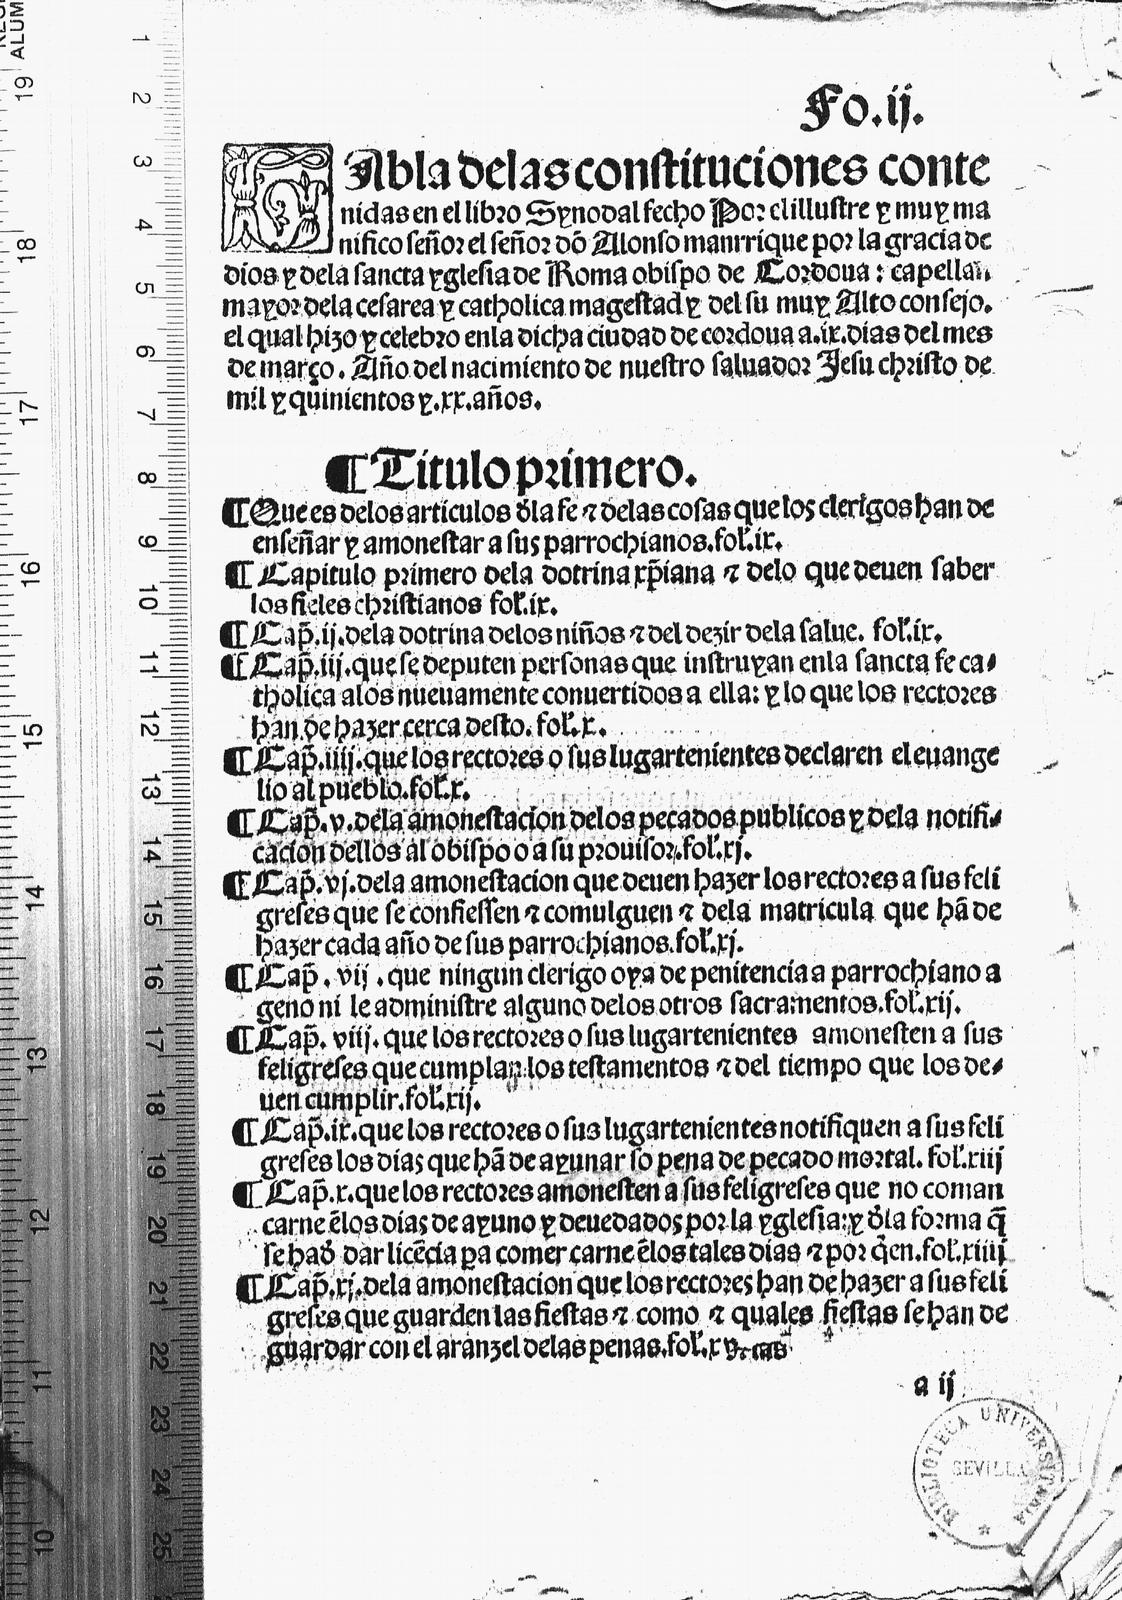 Fo.ij.
TAbla delas constituciones conte
nidas en el libro Synodal fecho Por el illustre y muy ma
nifico señor el señor dõ Alonso manrrique por la gracia de
dios y dela sancta yglesia de Roma obispo de Cordoua : capellan
mayor dela cesarea y catholica magestad y del su muy Alto consejo.
el qual hizo y celebro enla dicha ciudad de cordoua a.ix.dias del mes
de março. Año del nacimiento de nuestro saluador Jesu christo de
mil y quinientos y.xx.años.
¶Titulo primero.
¶Que es delos articulos d̃la fe ⁊ delas cosas que los clerigos han de
enseñar y amonestar a sus parrochianos.fol.ix.
¶ Capitulo primero dela dotrina xp̃iana ⁊ delo que deuen saber
los fieles christianos fol.ix.
¶ Cap̃.ij.dela dotrina delos niños ⁊ del dezir dela salue. fol.ix.
¶ Cap̃.iij.que se deputen personas que instruyan enla sancta fe ca-
tholica alos nueuamente conuertidos a ella: y lo que los rectores
han de hazer cerca desto. fol.x.
¶Cap̃.iiij.que los rectores o sus lugartenientes declaren el euange
lio al pueblo.fol.x.
¶ Cap̃.v.dela amonestacion delos pecados publicos y dela notifi-
cacion dellos al obispo o a su prouisor.fol.xj.
¶Cap̃.vj.dela amonestacion que deuen hazer los rectores a sus feli
greses que se confiessen ⁊ comulguen ⁊ dela matricula que hã de
hazer cada año de sus parrochianos.fol.xj.
¶ Cap̃. vij . que ningun clerigo oya de penitencia a parrochiano a
geno ni le administre alguno delos otros sacramentos.fol.xij.
¶ Cap̃. viij. que los rectores o sus lugartenientes amonesten a sus
feligreses que cumplan los testamentos ⁊ del tiempo que los de-
uen cumplir.fol.xij.
¶Cap̃.ix.que los rectores o sus lugartenientes notifiquen a sus feli
greses los dias que hã de ayunar so pena de pecado mortal. fol.xiij
¶ Cap̃.x.que los rectores amonesten a sus feligreses que no coman
carne ẽlos dias de ayuno y deuedados por la yglesia:y d̃la forma q̃
se had̃ dar licẽcia pa comer carne ẽlos tales dias ⁊ por q̃en.fol.xiiij
¶Cap̃.xj.dela amonestacion que los rectores han de hazer a sus feli
greses que guarden las fiestas ⁊ como ⁊ quales fiestas se han de
guardar con el aranzel delas penas.fol.xv
a ij
BIBLIOTECA UNIVERSITARIA
SEVILLA